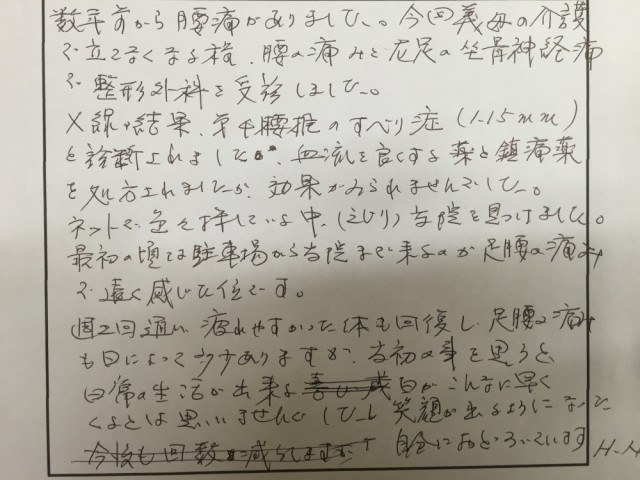 数年前から腰痛がありました。今回義母の介護
で立てなくなる程、腰の痛みと左足の坐骨神経痛
で整形外科を受診しました。
X線の結果、第4腰椎のすべり症(1.15mm)
と診断されました。血流を良くする薬と鎮痛薬
を処方されましたが、効果がみられませんでした。
ネットで色々探している中、(えびり)当院を見つけました。
最初の頃は駐車場から当院まで来るのが足腰の痛み
で遠く感じた位です。
週2回通い疲れやすかった体も回復し、足腰の痛み
も日によって多少ありますが、当初の事を思うと、
日常の生活が出来る喜び感 日がこんなに早く
くるとは思いませんでした 笑顔が出るようになった
今後も回数は減らしますが 自分におどろいています H.N